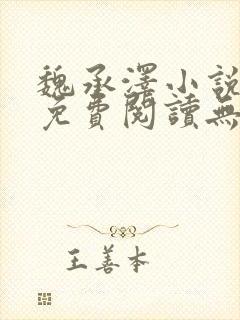 魏承澤小說
免費閱讀無
王善本